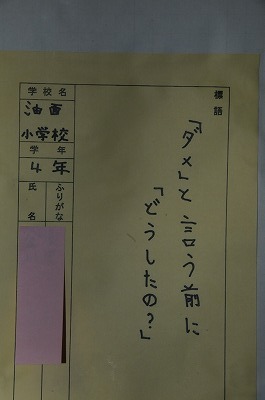 標語
「ダメ」と言う前に
「どうしたの？」
学校名
油面
小学校
学年
4年
ふりがな
氏名